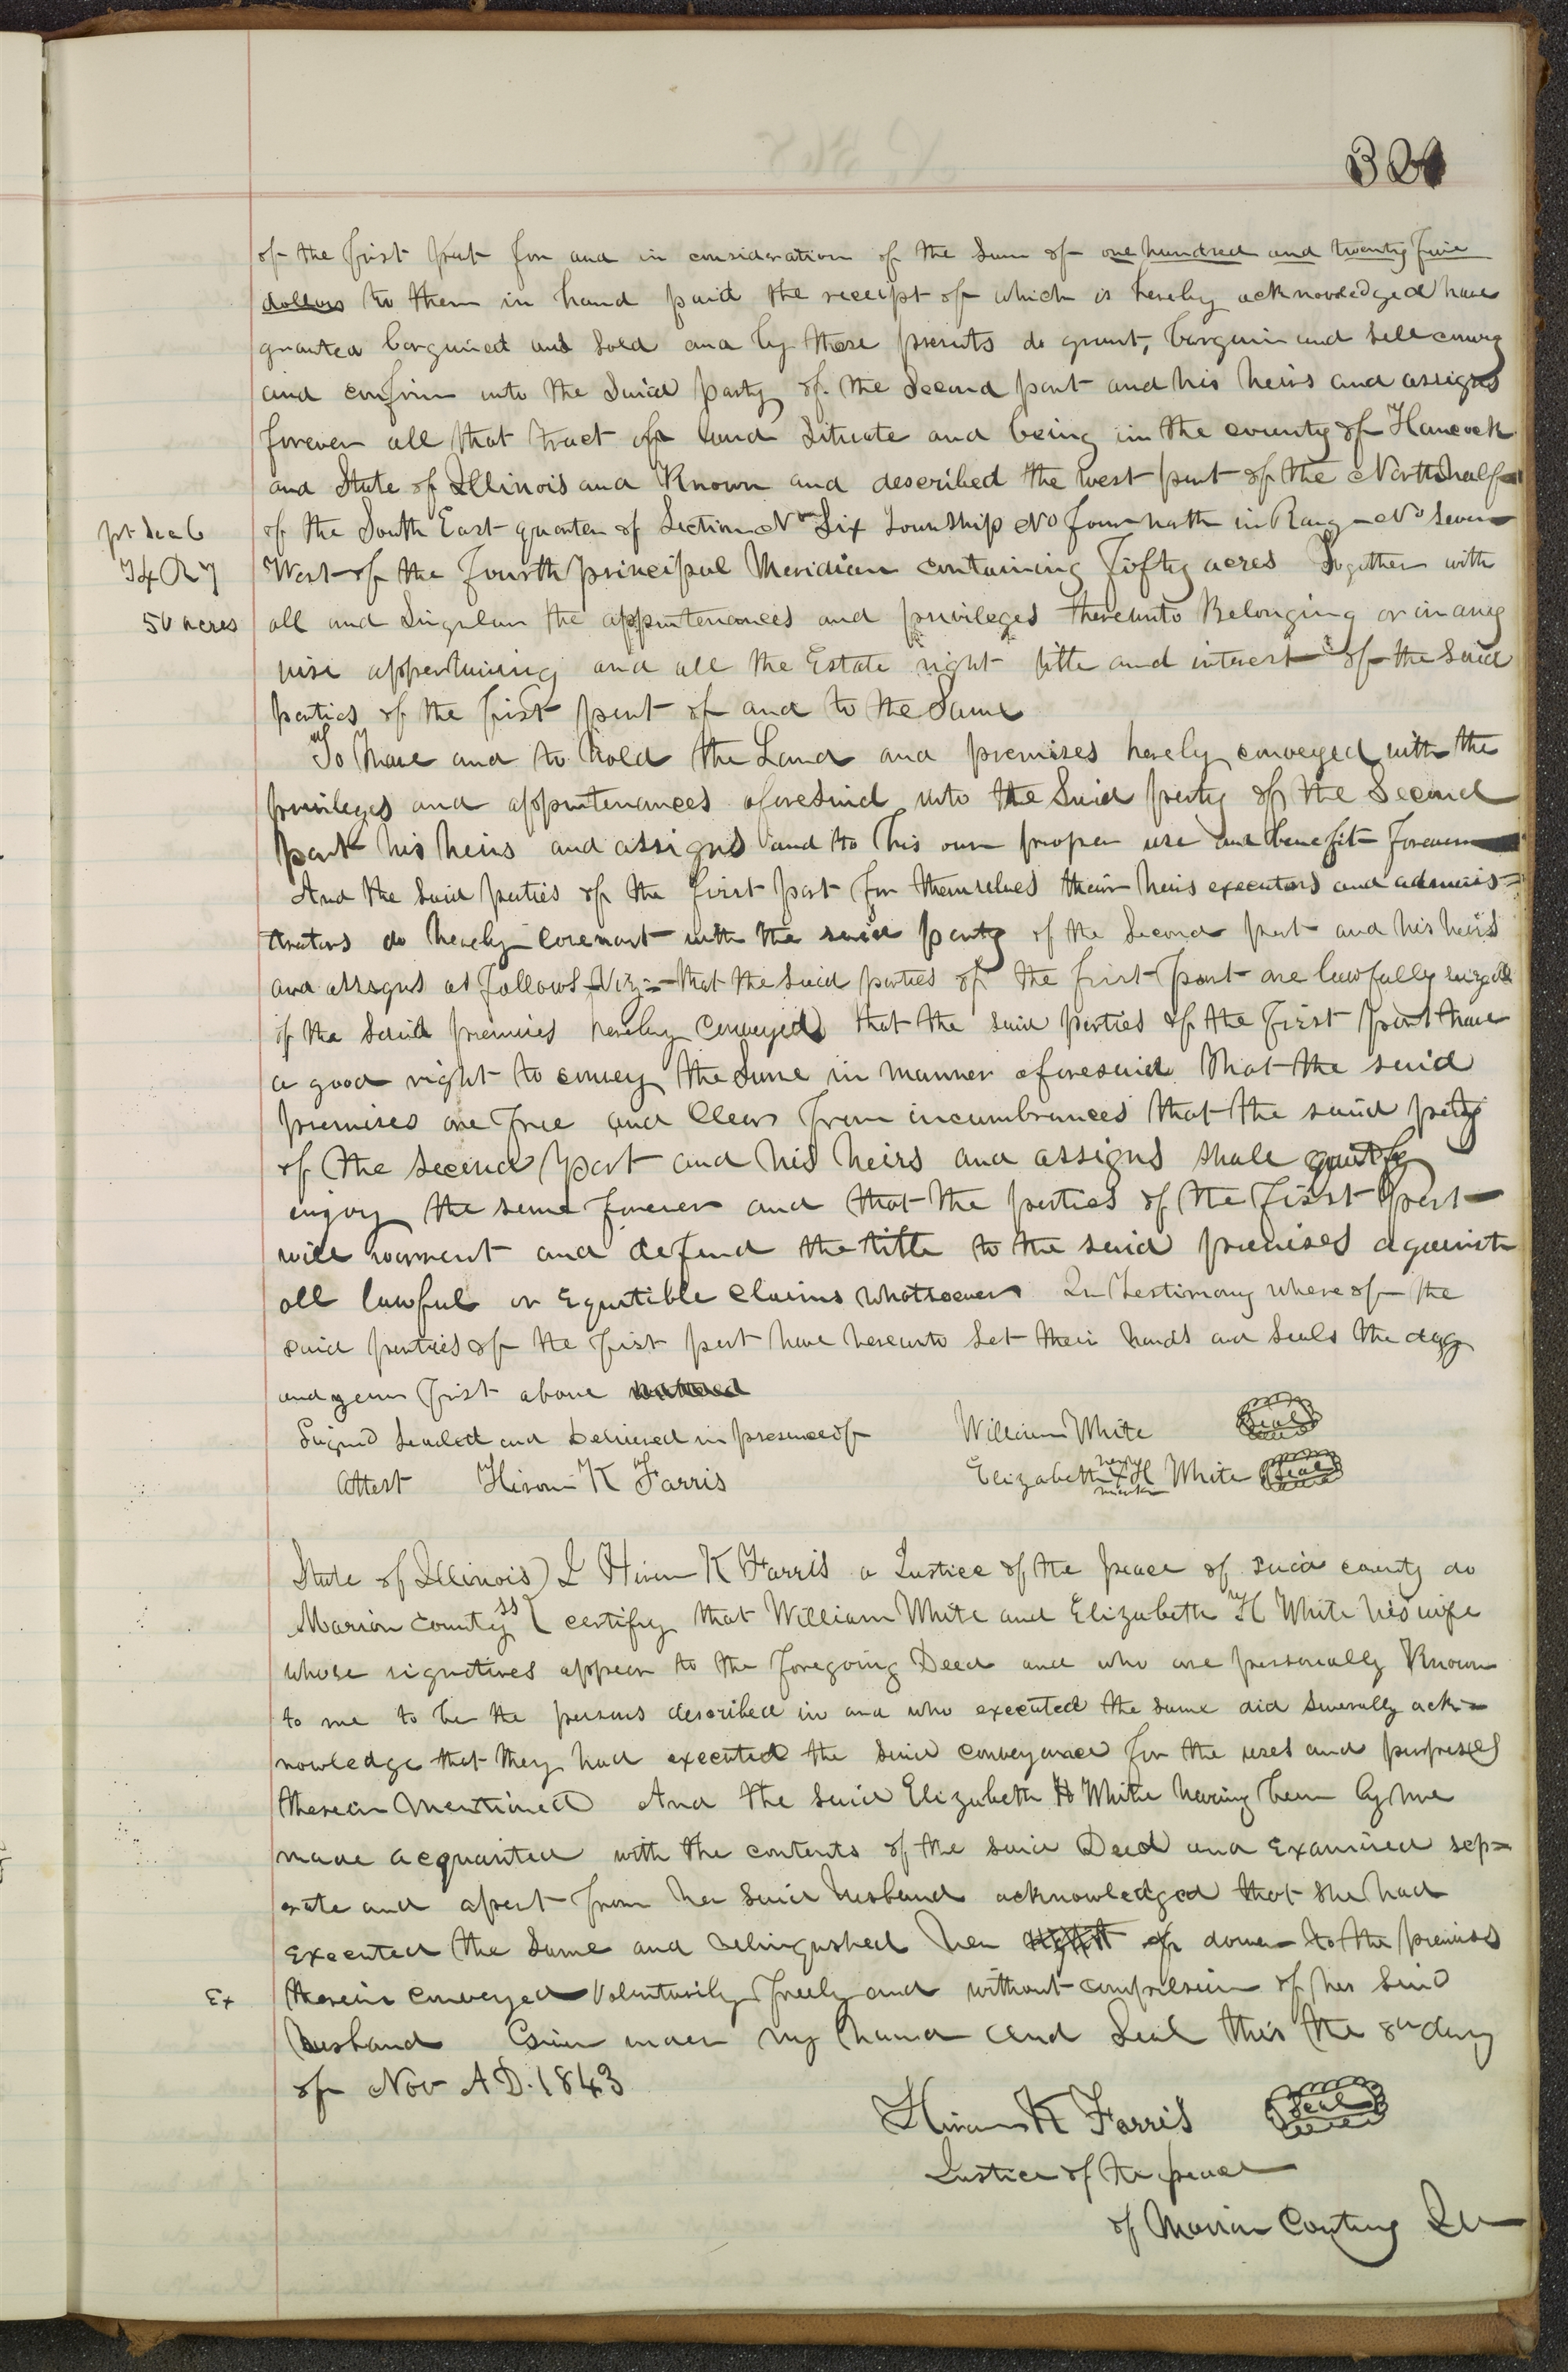 of the first part for and in consideration of the sum of one hundred and twenty five
dollars to them in hand paid the receipt of which is hereby acknowledged have
granted bargained and sold and by these presents do grant, bargain and sell convey
and confirm unto the said party of the Second part and his heirs and assigns
forever all that tract of land situate and being in the county of Hancock
and State of Illinois and Known and described the west part of the North half
pt Sec 6
of the South East quarter of Section No Six Township No four north in Range No Seven
T4 R7
West of the Fourth principal Meridian containing Fifty acres Together with
50 acres
all and Singular the appurtenances and privileges thereunto Belonging or in any
wise appertaining and all the Estate right title and interest of the said
parties of the first part of and to the Same
To have and to hold the Land and premises hereby conveyed with the
privileges and appurtenances aforesaid unto the Said party of the Second
part his heirs and assigns and to his own proper use and benefit Forever
And the Said parties of the first part for themselves their heirs executors and adminis=
trators do hereby covenant with the said party of the Second part and his heirs
and assigns as follows Viz:- that the said parties of the first part are lawfully seized
of the Said premises hereby conveyed that the said parties of the First part have
a good right to convey the Same in manner aforesaid that the said
premises are free and Clear from incumbrances that the said party
of the second part and his heirs and assigns shall
enjoy the same forever and that the parties of the First part
will warrent and defend the title to the said premises against
all lawful or Equitible claims whatsoever In Testimony where of the
said parties of the first part have hereunto Set their hands and Seals the day
and year first above
Signed Sealed and Delivered in presence of William White Seal
Attest Hiram K Farris Elizabeth her X mark H White Seal
State of Illinois) I Hiram K Farris a Justice of the peace of said county do
Marion County ss { certify that William White and Elizabeth H White his wife
whose signatures appear to the foregoing Deed and who are personally Known
to me to be the persons described in and who executed the same did severally ack=
nowledge that they had executed the said conveyance for the uses and purposes
therein mentioned And the said Elizabeth H White having been by me
made acquanted with the contents of the said Deed and Examined sep=
erate and apart from her said husband acknowledged that she had
executed the same and relinqushed her right of dower to the premises
Ex
therein conveyed voluntarily freely and without compulsion of her said
husband Given under my hand and Seal this the 8th day
of Nov A D. 1843
Hiram K Farris Seal
Justice of the peace
of Marion County Ill